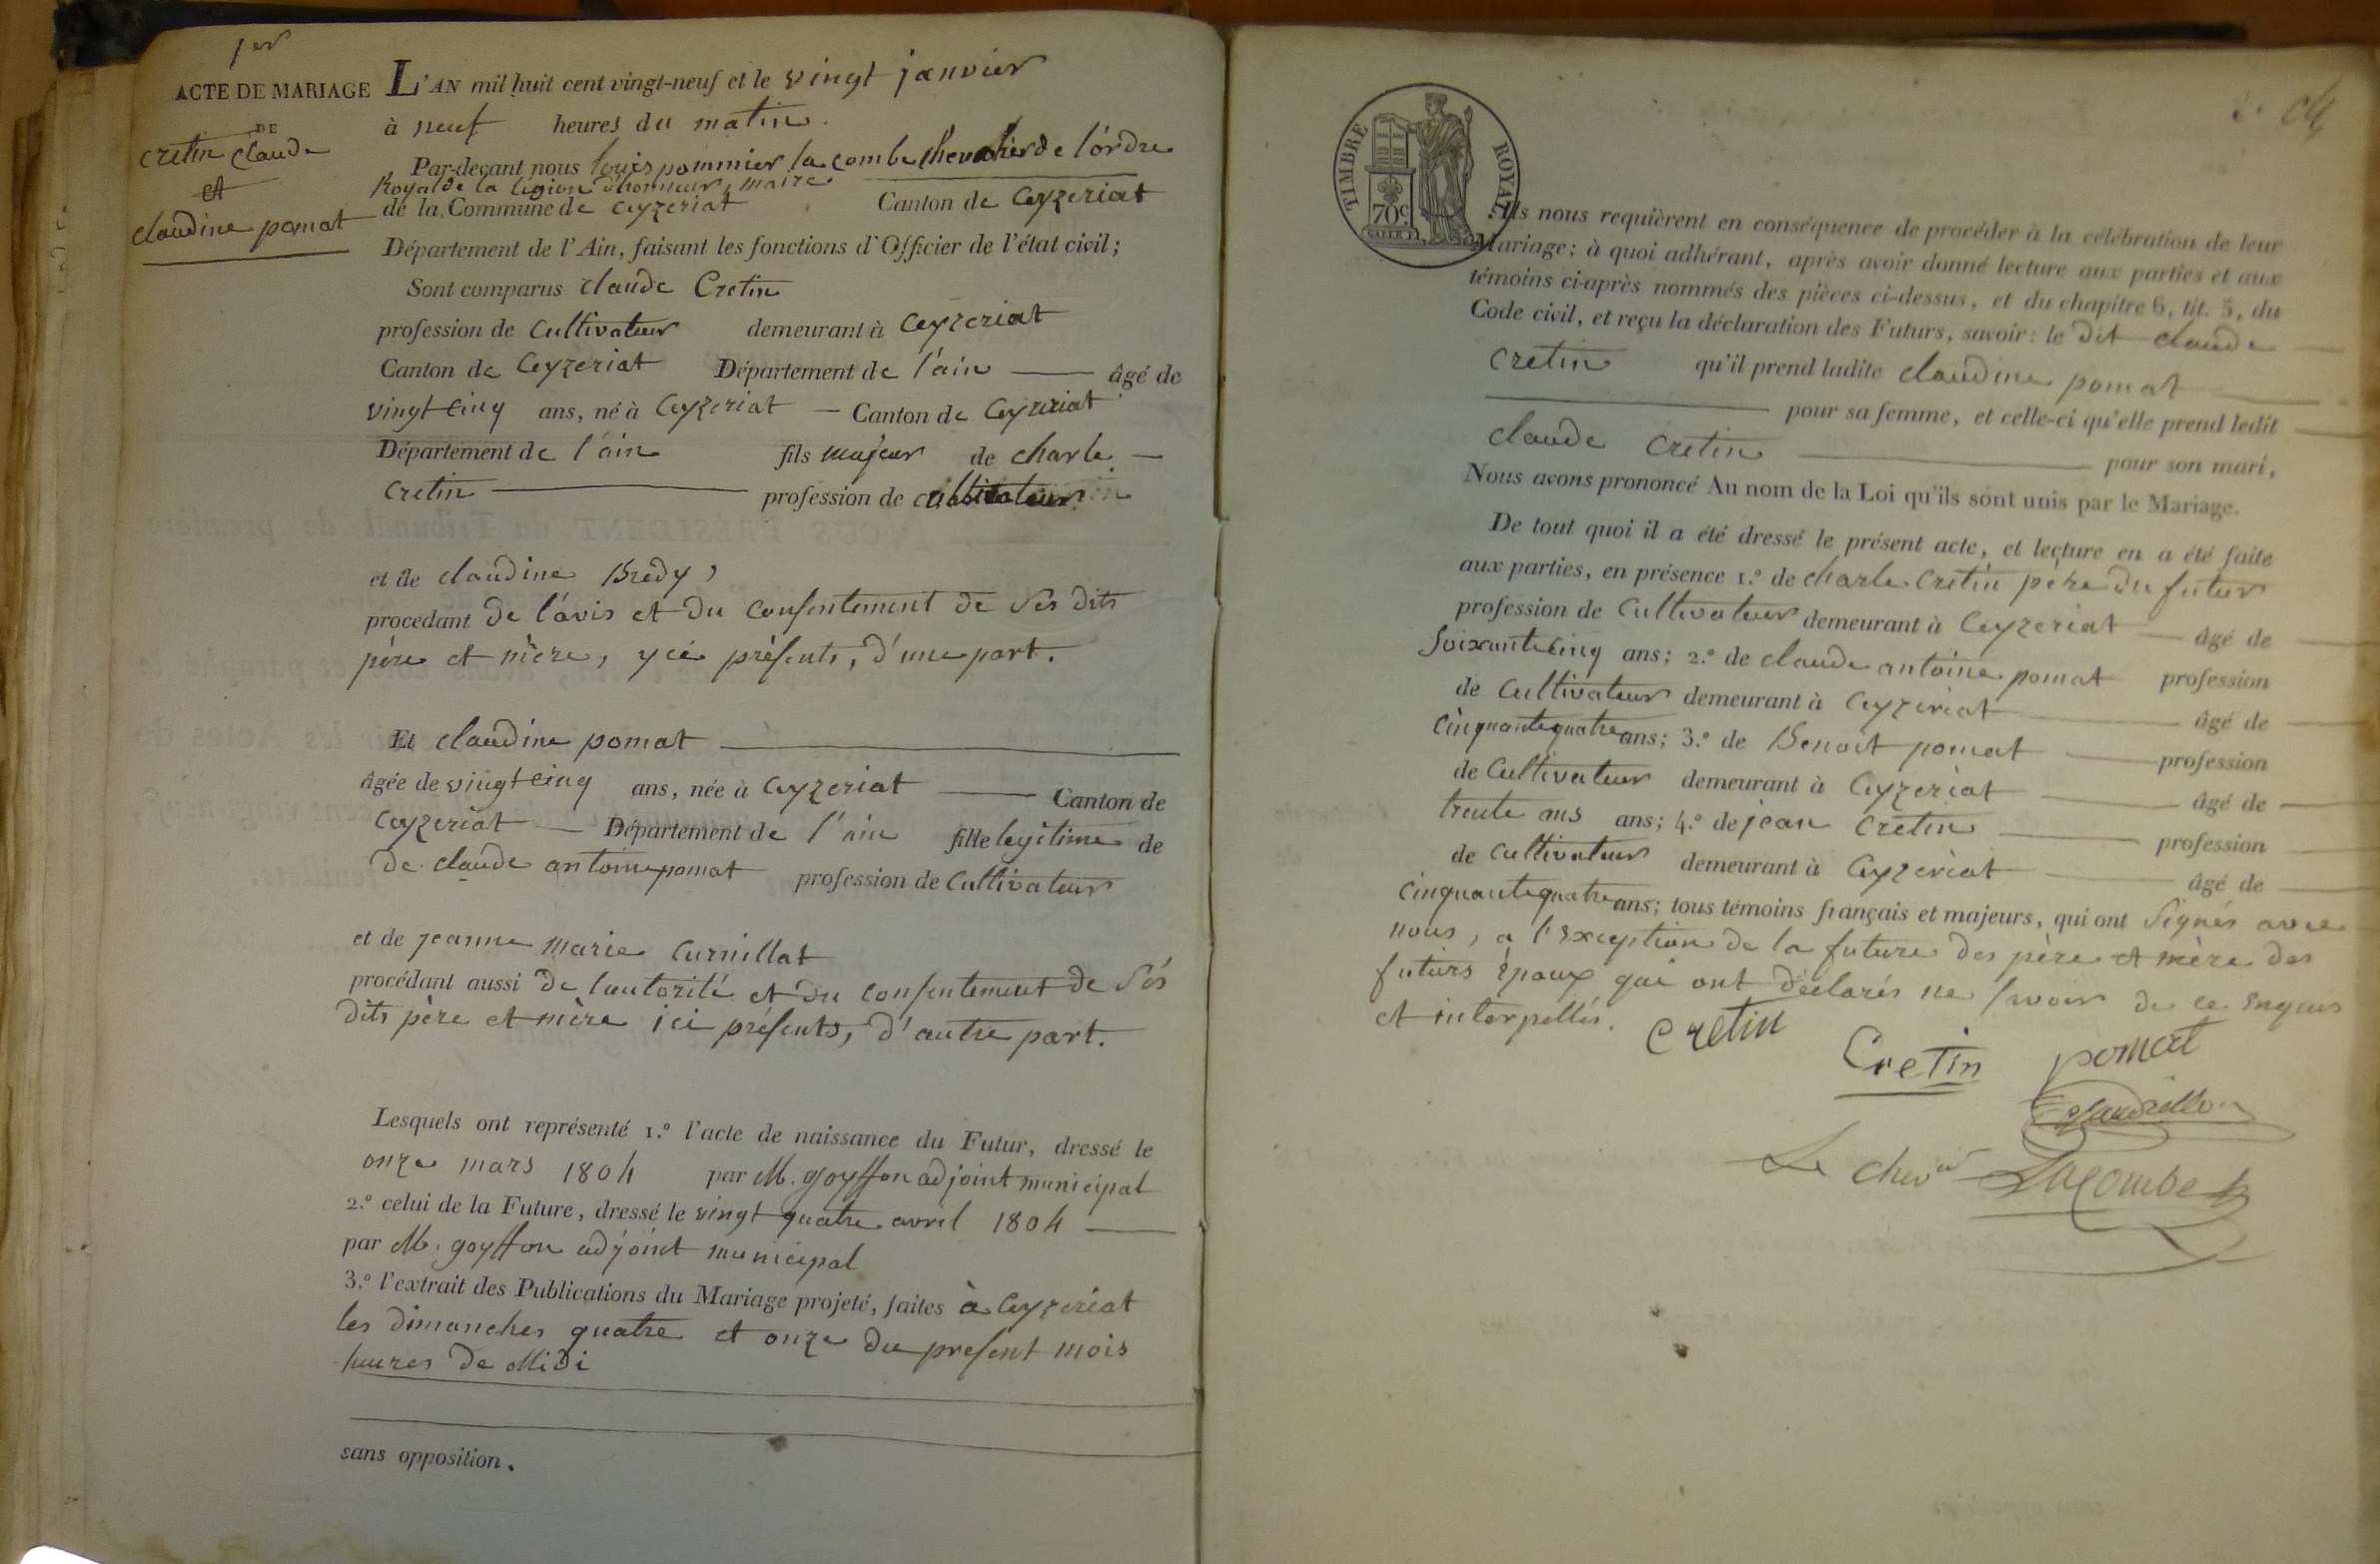 1er
ACTE DE MARIAGE
DE
cretin claude
et
claudine pomat
L'AN mil huit cent vingt-neuf et le vingt janvier
à neuf heures du matin.
Par-devant nous louis pommier la combe chevalier de l'órdre
Royal de la légion d'honneur, maire
de la Commune de ceyzeriat Canton de Ceyzeriat
Département de l'Ain, faisant les fonctions d'Officier de l'état civil;
Sont comparus claude Cretin
profession de Cultivateur demeurant à Ceyzeriat
Canton de Ceyzeriat Département de l'ain âgé de
vingt cinq ans, né à Ceyzeriat Canton de Ceyzeriat
Département de l'ain fils majeur de charle
Cretin profession de cultivateur
et de claudine Bredy,
procedant de l'avis et du consentement de ses dits
père et mère, y ci présents, d'une part.
Et claudine pomat
âgée de vingt cinq ans, née à Ceyzeriat Canton de
Ceyzeriat Département de l'ain fille legitime de
de claude antoine pomat profession de Cultivateur
et de jeanne marie Curnillat
procédant aussi de l'autorité et du consentement de Sés
dits père et mère ici présents, d'autre part.
Lesquels ont représenté 1.º l'acte de naissance du Futur, dressé le
onze mars 1804 par M. goyffon adjoint municipal
2.º celui de la Future, dressé le vingt quatre avril 1804
par M. goyffon adjoint municipal
3.º l'extrait des Publications du Mariage projeté, faites à Ceyzeriat
les dimanches quatre et onze du present mois
heures de Midi
sans opposition.
TIMBRE ROYAL
70c
Ils nous requièrent en conséquence de procéder à la célébration de leur
Mariage; à quoi adhérant, après avoir donné lecture aux parties et aux
témoins ci-après nommés des pièces ci-dessus, et du chapitre 6, tit. 5, du
Code civil, et reçu la déclaration des Futurs, savoir: le dit claude
cretin qu'il prend ladite claudine pomat
pour sa femme, et celle-ci qu'elle prend ledit
claude cretin pour son mari,
Nous avons prononcé Au nom de la Loi qu'ils sont unis par le Mariage.
De tout quoi il a été dressé le présent acte, et lecture en a été faite
aux parties, en présence 1.º de charle Cretin père du futur
profession de Cultivateur demeurant à Ceyzeriat âgé de
soixante cinq ans; 2.º de claude antoine pomat profession
de Cultivateur demeurant à Ceyzeriat âgé de
cinquante quatre ans; 3.º de Benoit pomat profession
de Cultivateur demeurant à Ceyzeriat âgé de
trente ans ans; 4.º de jean Cretin profession
de Cultivateur demeurant à Ceyzeriat âgé de
cinquante quatre ans; tous témoins français et majeurs, qui ont signés avec
nous, a l'exception de la future des père et mère des
futurs époux qui ont déclarés ne savoir de ce enquis
et interpellés.
cretin
Cretin pomat
Le chevr Lacombe